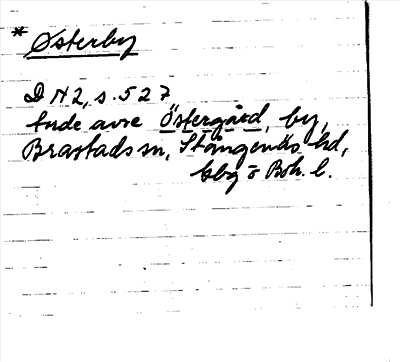 * Østerby
D N 2, s. 527
Inde avre Östergård, by,
Brastads sn, Stångenäs hd,
Gbg o Boh. l.